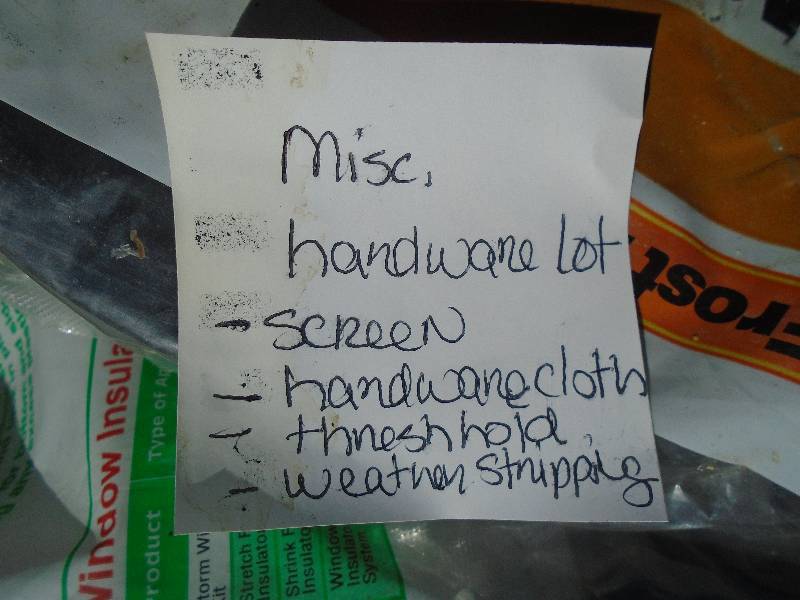 Misc.
hardware lot
- SCREEN
- hardware cloth
- threshhold
- weather stripping
Frost
Window Insula
Type of Ap
Product
torm Wi
it
Stretch F
Insulator
Shrink F
Insulato
Window
Insulat
System